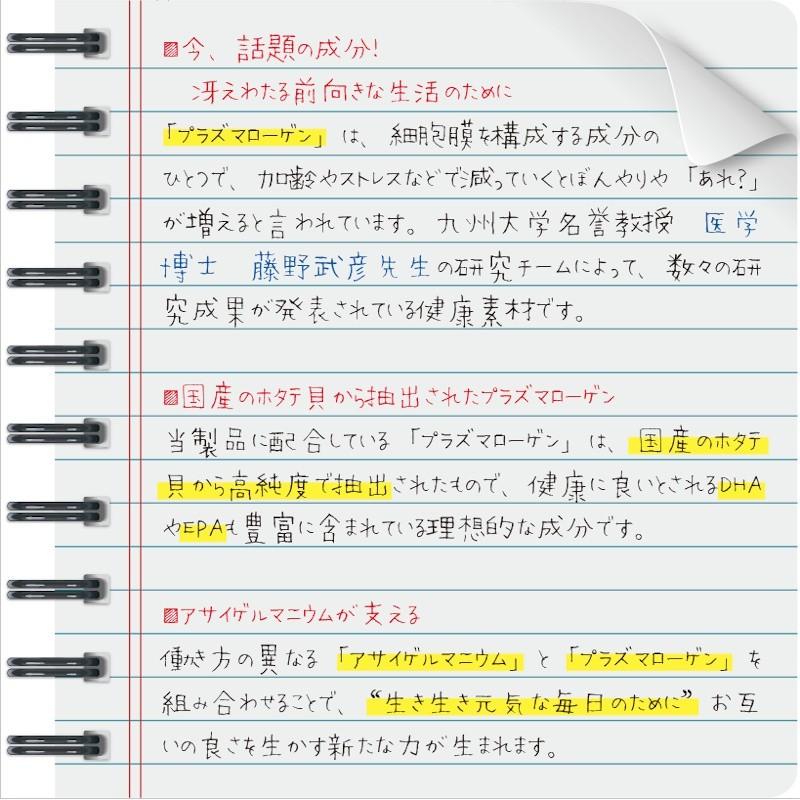 ▨今、話題の成分!
冴えわたる前向きな生活のために
「プラズマローゲン」は、細胞膜を構成する成分の
ひとつで、加齢やストレスなどで減っていくとぼんやりや「あれ?」
が増えると言われています。九州大学名誉教授 医学
博士 藤野武彦先生の研究チームによって、数々の研
究成果が発表されている健康素材です。
▨国産のホタテ貝から抽出されたプラズマローゲン
当製品に配合している「プラズマローゲン」は、国産のホタテ
貝から高純度で抽出されたもので、健康に良いとされるDHA
やEPAも豊富に含まれている理想的な成分です。
▨アサイゲルマニウムが支える
働き方の異なる「アサイゲルマニウム」と「プラズマローゲン」を
組み合わせることで、“生き生き元気な毎日のために”お互
いの良さを生かす新たな力が生まれます。